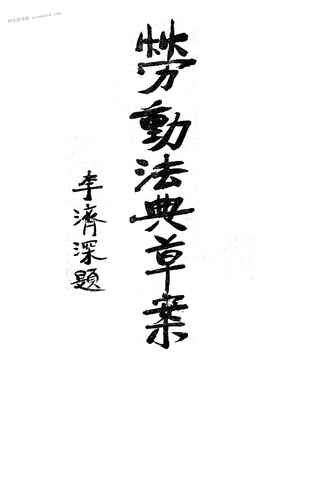 勞動法典草案
李濟深題